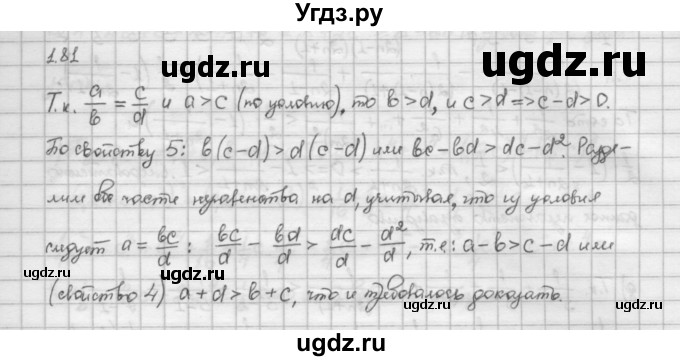 Угдз.ру
1.81
Т.к. a/в = c/d и a>c (по условию), то в>d, и c>d => c-d>0.
По свойству 5: в(c-d)>d(c-d) или вc-вd>dc-d². Разде-
лим обе части неравенства на d, учитывая, что из условия
следует a = вc/d : вc/d - вd/d > dc/d - d²/d, т.е: a-в>c-d или
(свойство 4) a+d>в+c, что и требовалось доказать.
uдgz.ru